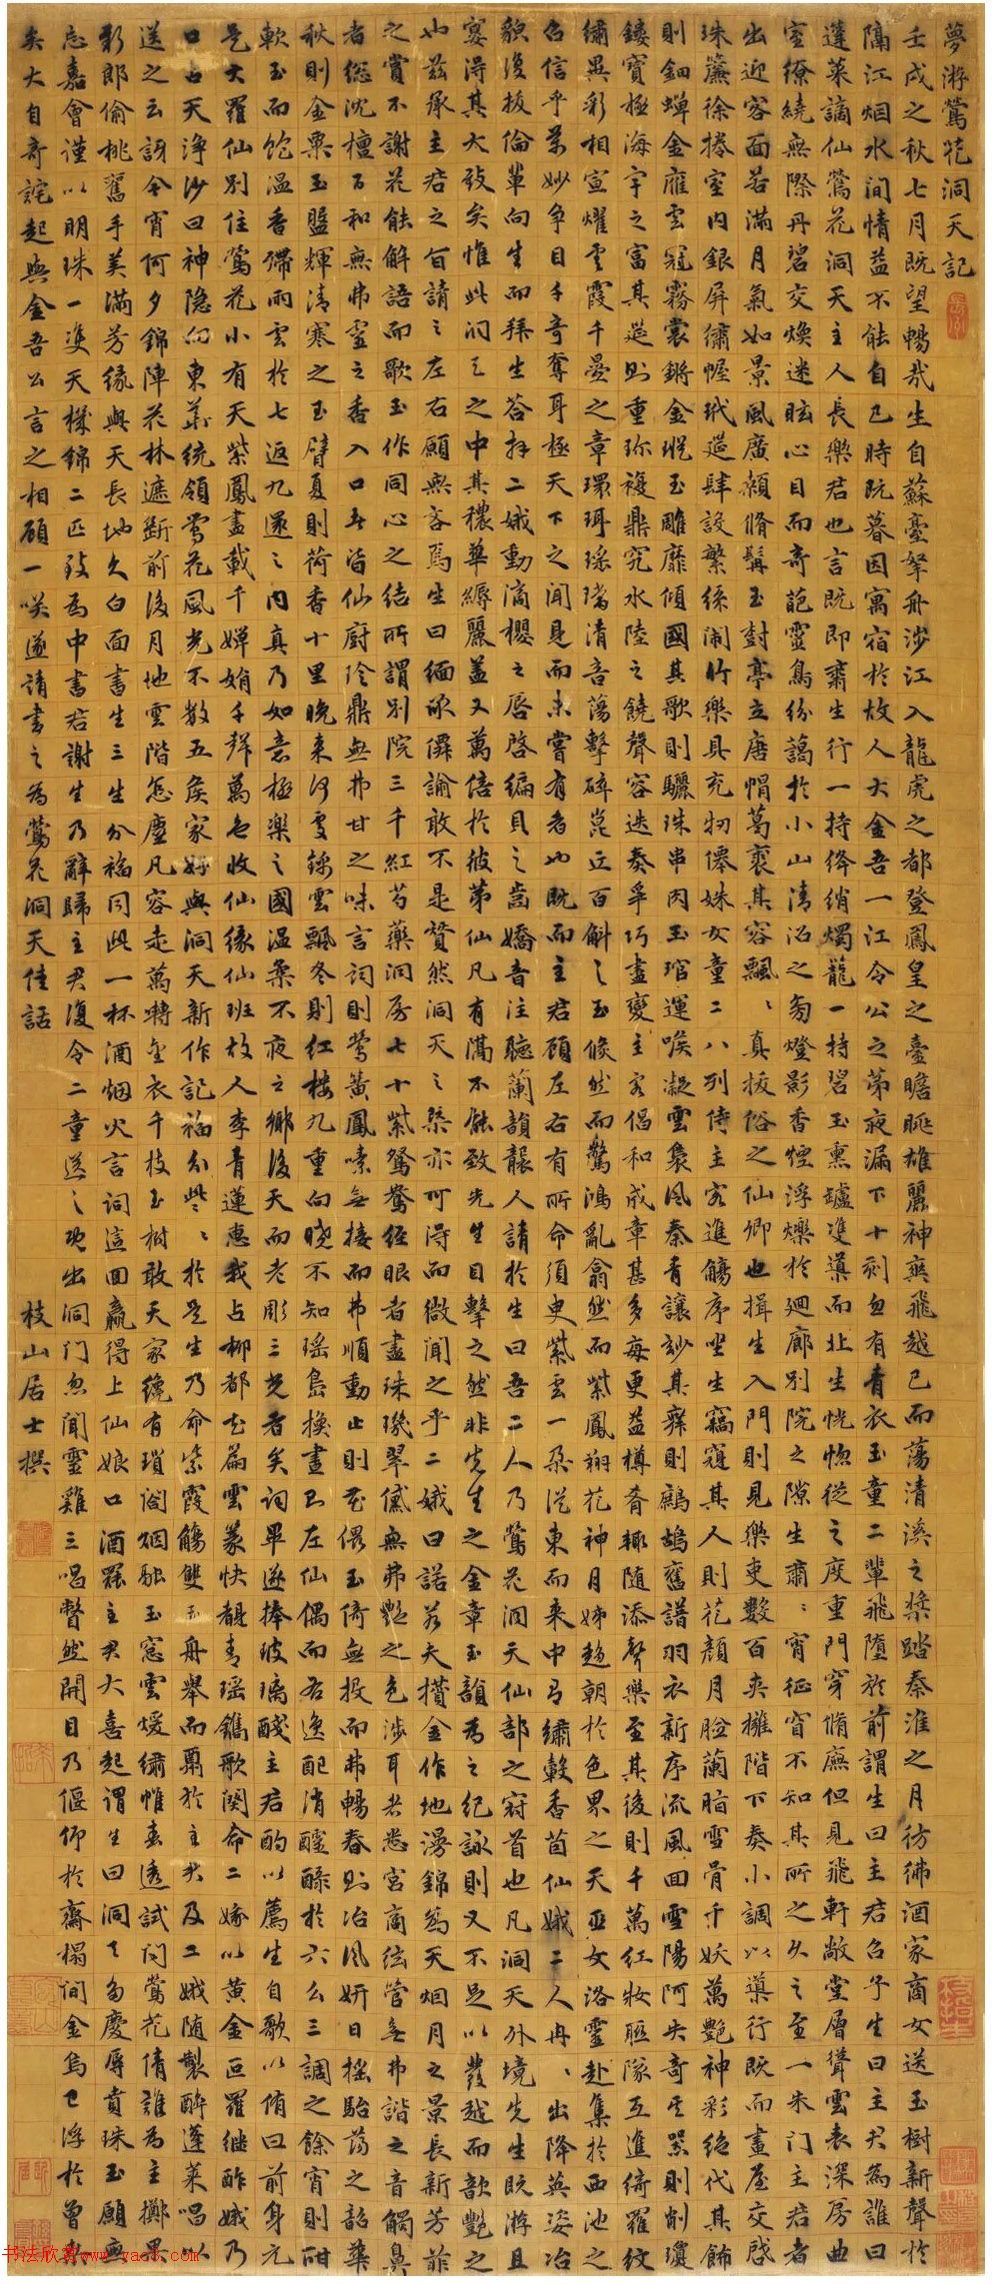 夢游鶯花洞天記
壬戌之秋七月既望暢哉生自蘇臺拏舟涉江入龍虎之都登鳳皇之臺瞻眺雄麗神爽飛越已而蕩清溪之槳踏秦淮之月彷彿酒家商女送玉樹新聲於
隔江烟水間情益不能自已時既暮因寓宿於故人大金吾一江令公之第夜漏下十刻忽有青衣玉童二輩飛墮於前謂生曰主君召予生曰主君為誰曰
蓬萊謫仙鶯花洞天主人長樂君也言既即肅生行一持絳綃燭龍一持碧玉熏罏雙導而北生恍惚從之度重門穿脩廡但見飛軒敞堂層聳雲表深房曲
室繚繞無際丹碧交煥迷眩心目而奇葩靈鳥紛藹於小山清沼之匊燈影香煙浮爍於迴廊別院之隙生肅肅宵征窅不知其所之久之至一朱门主君者
出迎容面若滿月氣如景風廣顙脩髯玉封亭立唐帽葛裘其容飄飄真拔俗之仙卿也揖生入門則見樂吏數百夾擁階下奏小調以導行既而畫屋交啓
珠簾徐捲室内銀屏繡幄玳筵肆設繁絲鬧竹樂具充牣僊姝女童二八列侍主客進觴序坐生竊寇其人則花顏月臉蘭脂雪骨千妖萬艷神彩絶代其飾
則鈿蟬金雁雲冠霧裳鏘金璁玉雕靡傾國其歌則驪珠串肉玉琯運喉凝雲裊风秦青讓妙其舞則鷓鴣舊譜羽衣新序流風回雪陽阿失奇其器則削瓊
鏤寶極海宇之富其筵則重珎複鼎窮水陸之饒聲容迭奏爭巧盡變主客倡和成章甚多每更益樽肴輒随添聲樂至其後則千萬红妝聯隊互進綺羅紋
繡異彩相宣燿雲霞千疊之章環珥瑶璫清音蕩擊碎崑丘百斛之玉倏然而驚鴻亂翕然而紫鳳翔花神月姊趨朝於色界之天亚女洛靈赴集於西池之
召信乎萬妙争目千奇奪耳極天下之聞見而未嘗有者也既而主君顧左右有所命須臾紫雲一朵從東而来中有繡轂香茵仙娥二人冉冉出降英姿冶
貌復拔倫輩向生而拜生答拜二娥動滴櫻之唇啓編貝之齒嬌音注聽蘭韻襲人請於生曰吾二人乃鶯花洞天仙部之冠首也凡洞天外境先生既游且
宴得其大致矣惟此洞天之中其穠華縟麗蓋又萬倍於彼第仙凡有隔不能致先生目擊之然非先生之金章玉韻為之纪詠則又不足以發越而歆艷之
也兹承主君之旨請之左右願無吝焉生曰緬承僊諭敢不是贊然洞天之槩亦可得而微聞之乎二娥曰諾若夫攢金作地漫錦為天烟月之景長新芳菲
之賞不謝花能解語而歌玉作同心之结所謂別院三千紅芍藥洞房七十紫鴛鴦经眼者盡珠璣翠黛無弗艷之色涉耳者悉宮商弦管無弗諧之音觸鼻
者総沈檀百和無弗靈之香入口者皆仙廚珍鼎無弗甘之味言詞則鶯簧鳳嗉無接而弗順動止則花偎玉倚無投而弗暢春则冶风妍日摇駘荡之韶華
秋則金粟玉盤輝清寒之玉臂夏則荷香十里晚来浮雯絲雲飄冬則红樓九重向曉不知瑶島換晝而左仙偶而右逸配消醽醁於六么三調之餘宵則酣
軟玉而饱溫香殢雨雲於七返九還之内真乃如意極樂之國温柔不夜之鄉後天而老彫三光者矣詞畢遂捧玻璃酸主君酌以薦生自歌以侑曰前身元
是大羅仙別住鶯花小有天紫鳳畫載千嬋娟千群萬色收仙缘仙班故人李青蓮惠我占柳都花篇雲篆快覩青瑶鐫歌闋命二娥以黄金叵羅继酢娥乃
口占天浄沙曰神隐向東華統領鶯花風光不数五侯家好與洞天新作記福分些些於是生乃命紫霞觴雙玉舟舉而屬於主君及二娥随製醉蓬萊唱以
送之云訝今宵何夕錦陣花林遮斷前後月地雲階怎塵凡容走萬轉金衣千枝玉樹敢天家纔有瑣閤烟融玉窓雲煖繡帷春透試问鶯花倩誰為主擲果
彩郎偷桃舊手美滿芳緣與天長地久白面書生三生分福同此一杯酒烟火言詞這回贏得上仙娘口酒罷主君大喜起谓生曰洞天多慶辱賁珠玉願無
忘嘉會谨以明珠一雙天機錦二匹致為中書君謝生乃辭歸主君復令二童送之既出洞门忽聞靈雞三唱瞥然開目乃偃仰於齋榻间金烏已浮於曾氷
矣大自奇詫起與金吾公言之相顧一咲遂請書之為鶯花洞天佳話
枝山居士撰
书法欣赏www.yac8.com